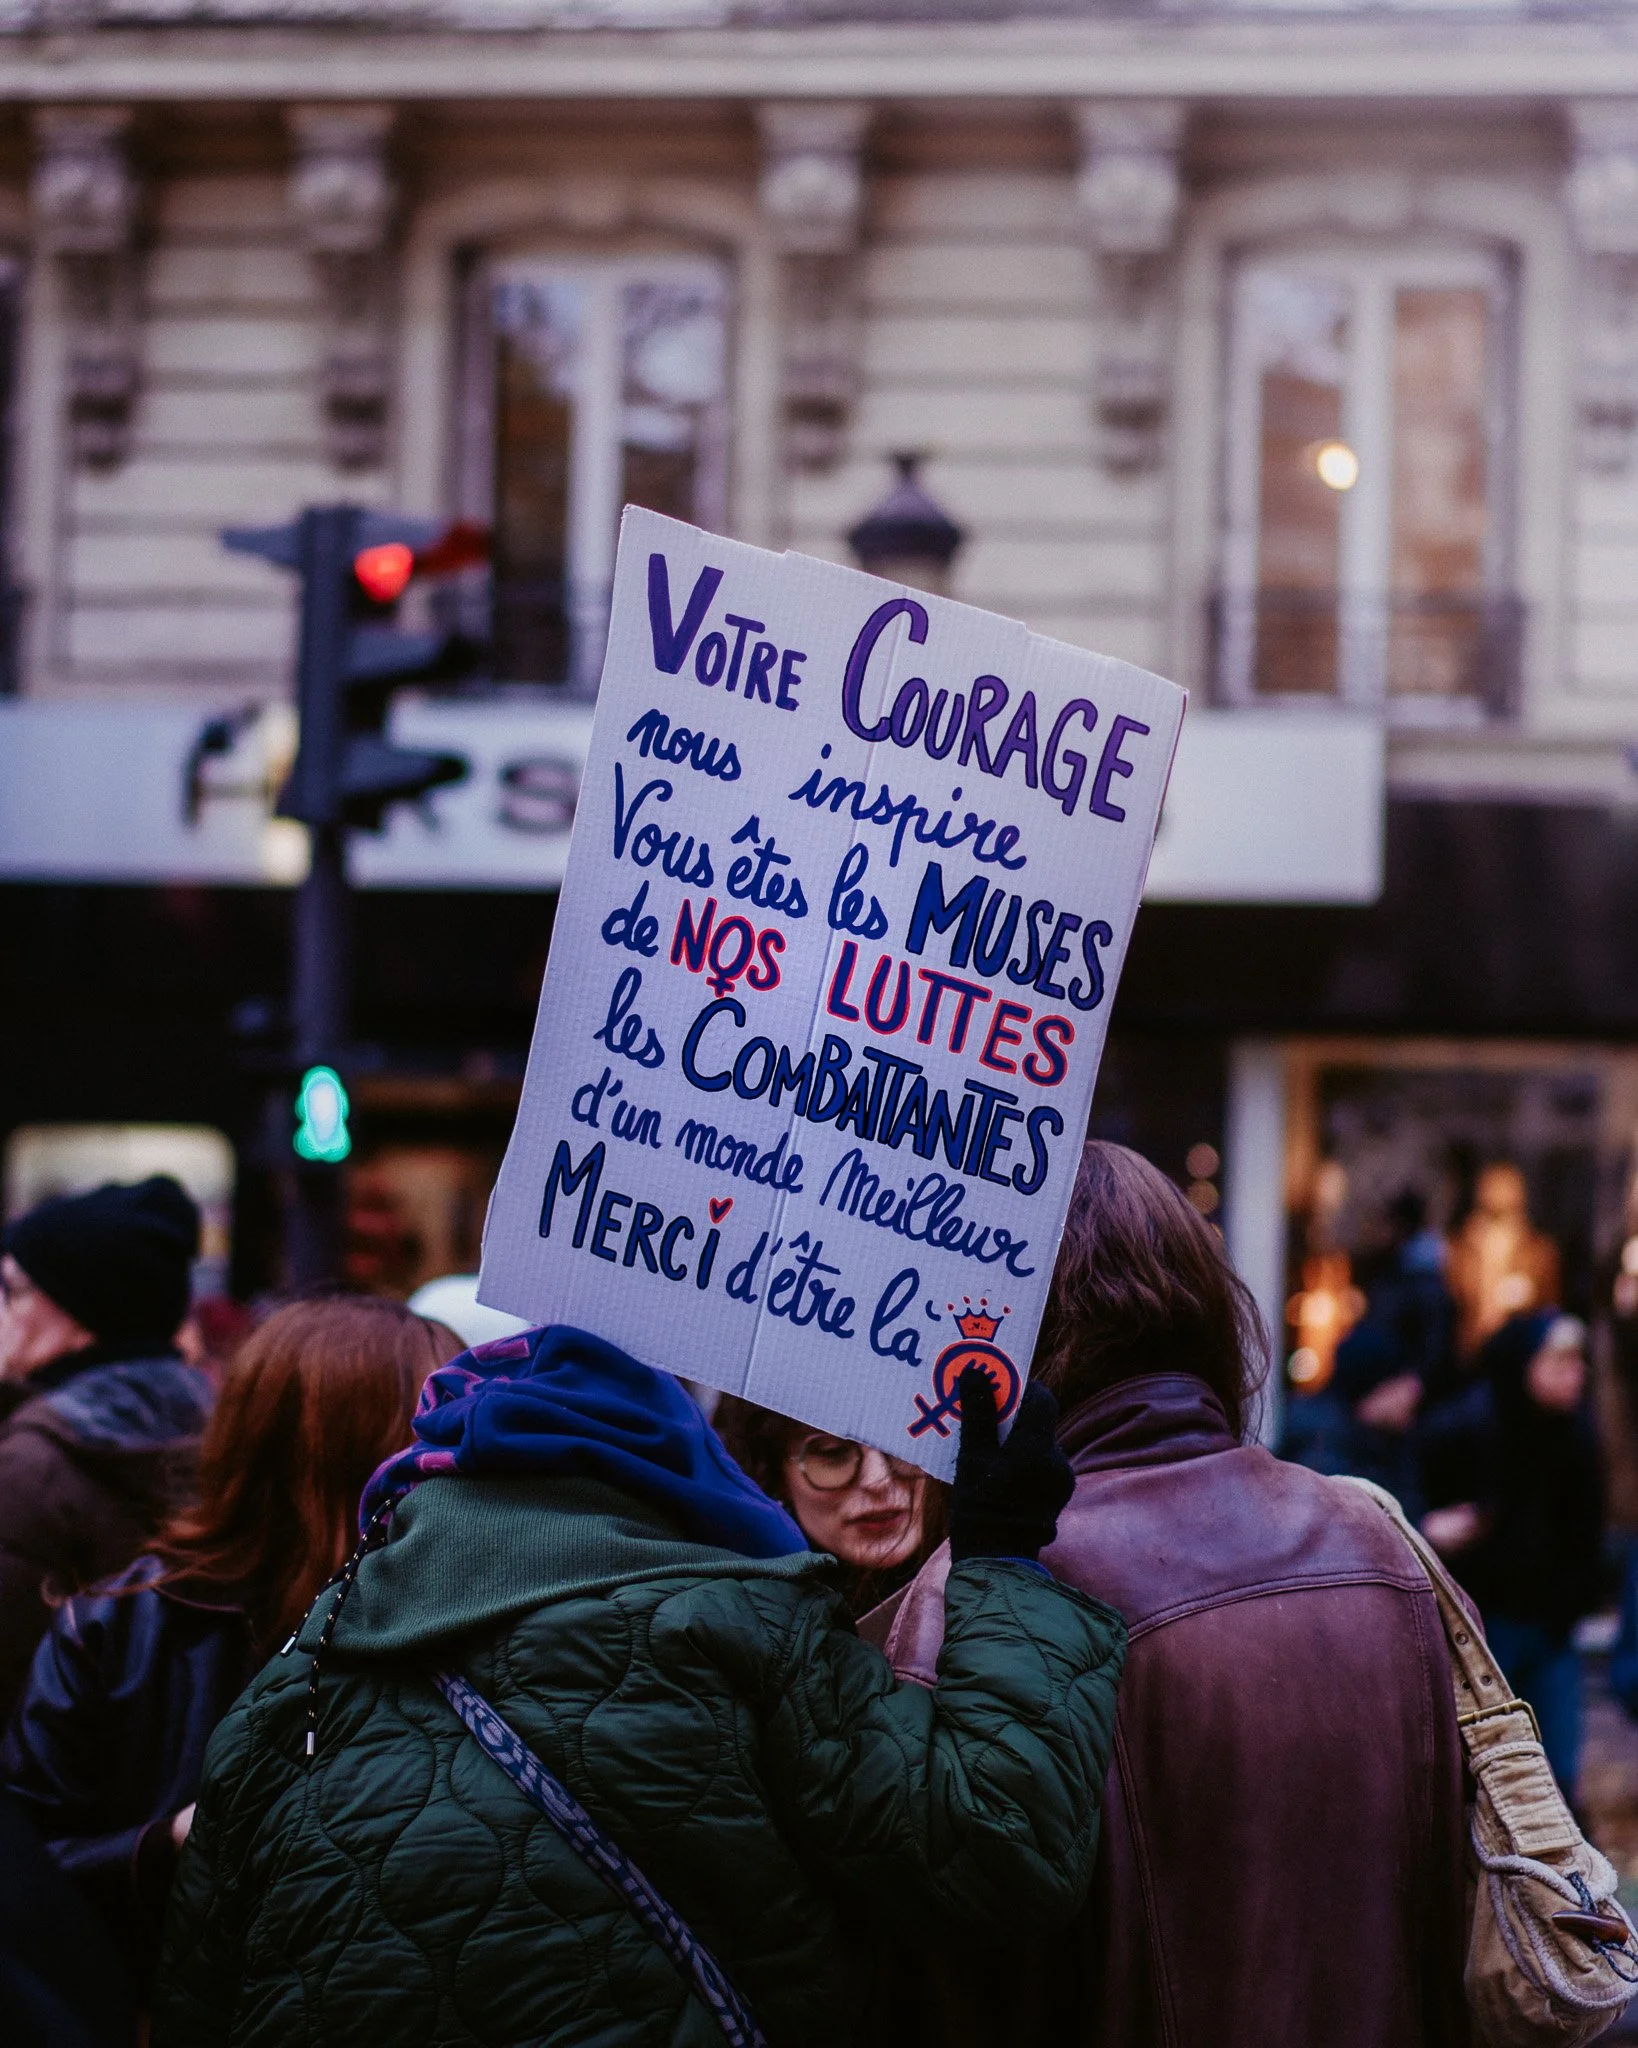 VOTRE COURAGE
nous inspire
Vous êtes les MUSES
de NOS LUTTES
les COMBATTANTES
d'un monde Meilleur
MERCi d'être là